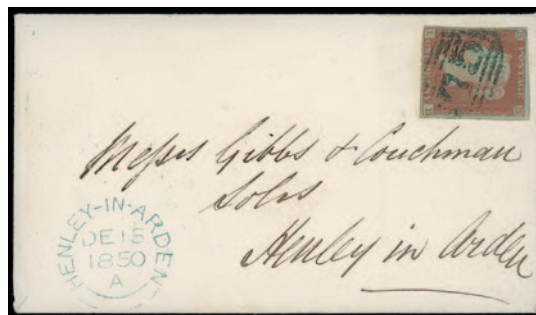 POSTAGE
Messrs Gibbs & Couchman
Solrs
Henley in Arden
HENLEY-IN-ARDEN
DE 15
1850
A